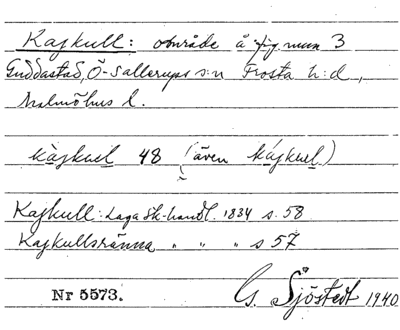 Kajkull: område å äg. num 3
Guddastad, Ö-Sallerups s:n Frosta h:d,
Malmöhus l.
kàjkuel 48 (även kájkuel)
Kajkull: Laga Sk-handl. 1834 s. 58
Kajkullsränna " " " s 57
Nr 5573.
G. Sjöstedt 1940